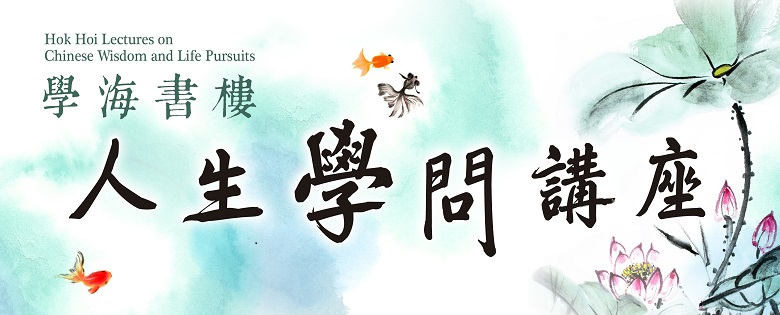 Hok Hoi Lectures on
Chinese Wisdom and Life Pursuits
學海書樓
人生學問講座